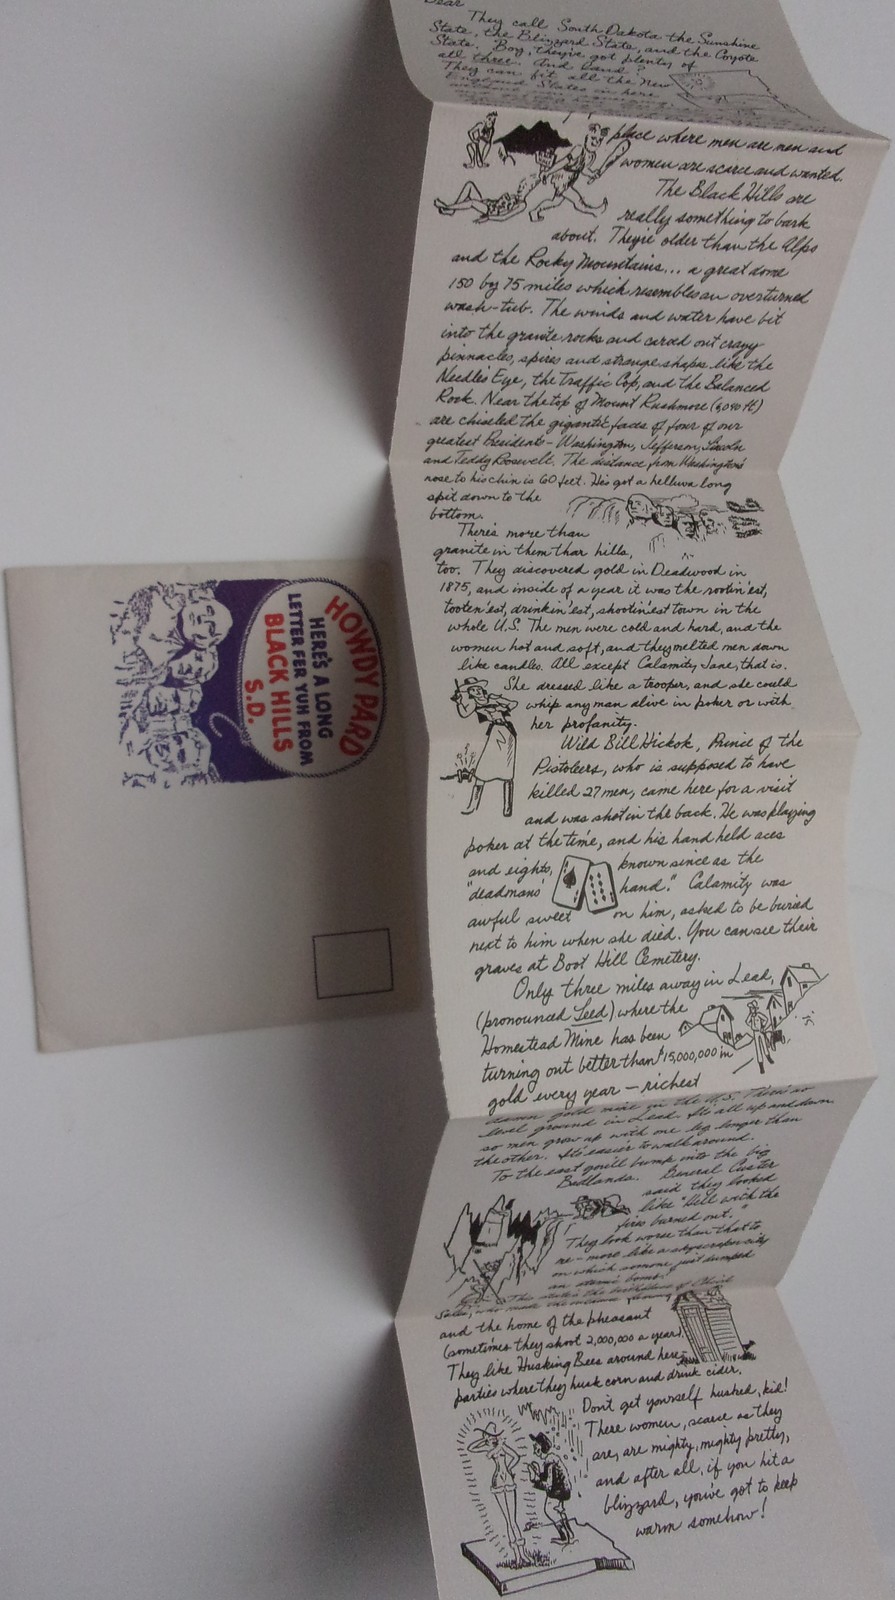 Dear
They call South Dakota the Sunshine
State, the Blizzard State, and the Coyote
State. Boy, they've got plenty of
all three. And land?
They can fit all the New
England States in here
place where men are men and
women are scarce and wanted.
The Black Hills are
really something to bark
about. They're older than the Alps
and the Rocky Mountains... a great dome
150 by 75 miles which resembles an overturned
wash-tub. The winds and water have bit
into the granite rocks and carved out crazy
pinnacles, spires and strange shapes like the
Needle's Eye, the Traffic Cop, and the Balanced
Rock. Near the top of Mount Rushmore
are chiseled the gigantic faces of four of our
greatest Presidents - Washington, Jefferson, Lincoln
and Teddy Roosevelt. The distance from Washington's
nose to his chin is 60 feet. He's got a helluva long
spit down to the
bottom.
There's more than
granite in them thar hills,
too. They discovered gold in Deadwood in
1875, and inside of a year it was the rootin'est,
tooten'est, drinkin'est, shootin'est town in the
whole U.S. The men were cold and hard, and the
women hot and soft, and they melted men down
like candles. All except Calamity Jane, that is.
She dressed like a trooper, and she could
whip any man alive in poker or with
her profanity.
Wild Bill Hickok, Prince of the
Pistoleers, who is supposed to have
killed 27 men, came here for a visit
and was shot in the back. He was playing
poker at the time, and his hand held aces
and eights, known since as the
"deadmans' hand." Calamity was
awful sweet on him, asked to be buried
next to him when she died. You can see their
graves at Boot Hill Cemetery.
Only three miles away in Lead,
(pronounced Leed) where the
Homestead Mine has been
turning out better than $15,000,000 in
gold every year — richest
damn gold mine in the U.S. There's no
level ground in Lead. It's all up and down
so men grow up with one leg longer than
the other. It's easier to walk around.
To the east you'll bump into the big
Badlands. General Custer
said they looked
like "Hell with the
fires burned out."
They look worse than that to
me - more like a skyscraper city
on which someone just dumped
an atomic bomb.
This state's the birthplace of Chick
Sales, who made the outhouse famous,
and the home of the pheasant
(sometimes they shoot 2,000,000 a year).
They like Husking Bees around here -
parties where they husk corn and drink cider.
Don't get yourself husked, kid!
These women, scarce as they
are, are mighty, mighty pretty,
and after all, if you hit a
blizzard, you've got to keep
warm somehow!
HOWDY PARD
HERE'S A LONG
LETTER FER YUH FROM
BLACK HILLS
S.D.